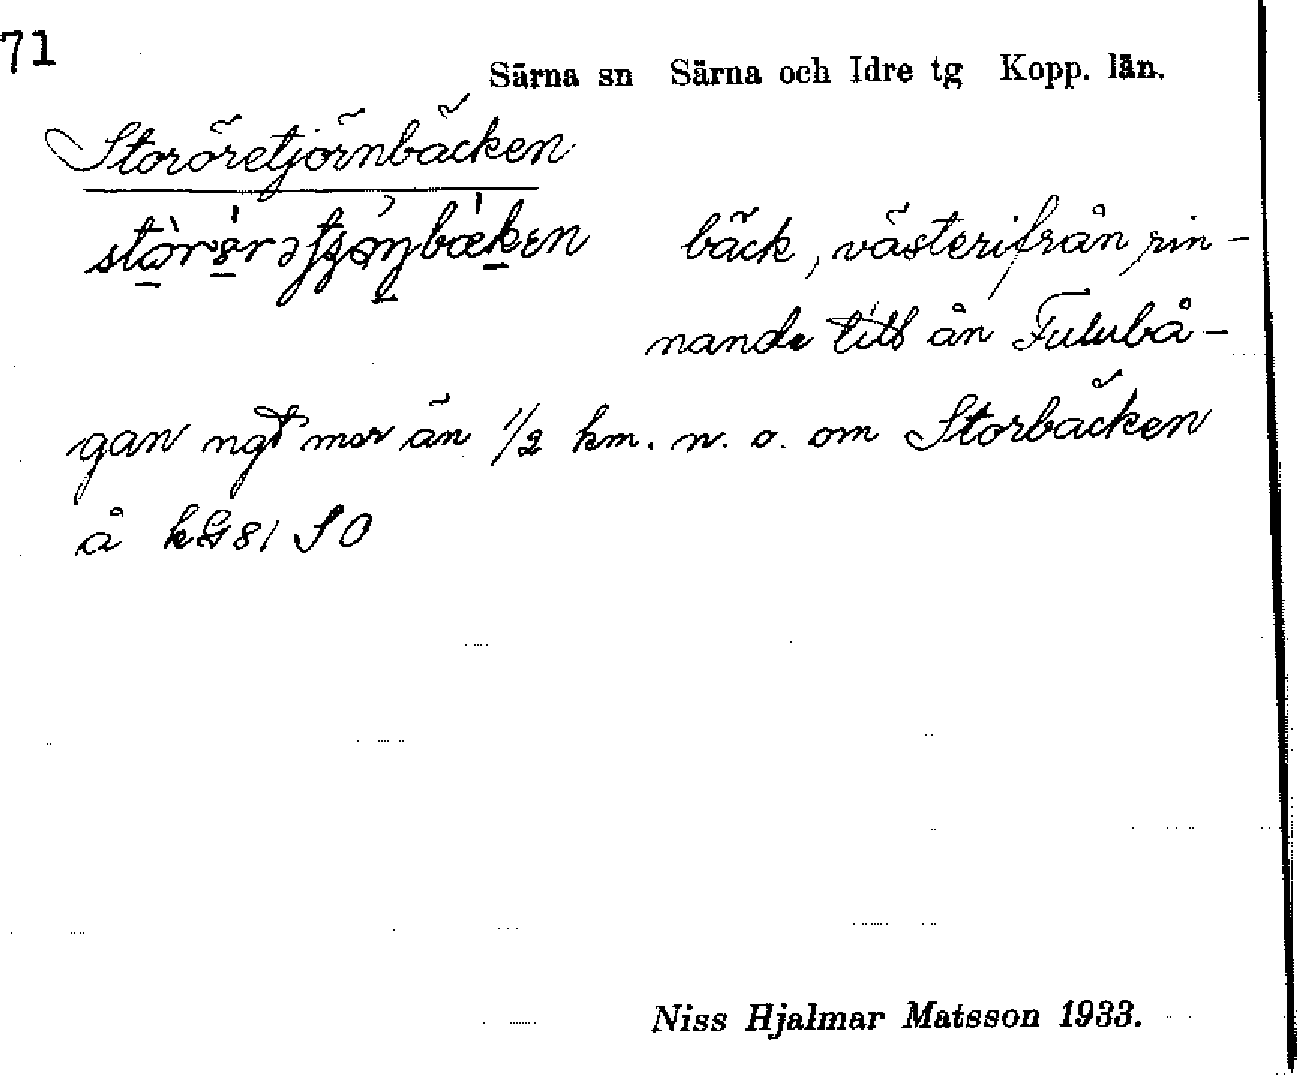 71
Särna sn Särna och Idre tg Kopp. län.
Storöretjörnbäcken
bäck, västerifrån rin-
nande till ån Fulubå-
gan ngt mer än 1/2 km. n. o. om Storbäcken
å kG81 SO
Niss Hjalmar Matsson 1933.